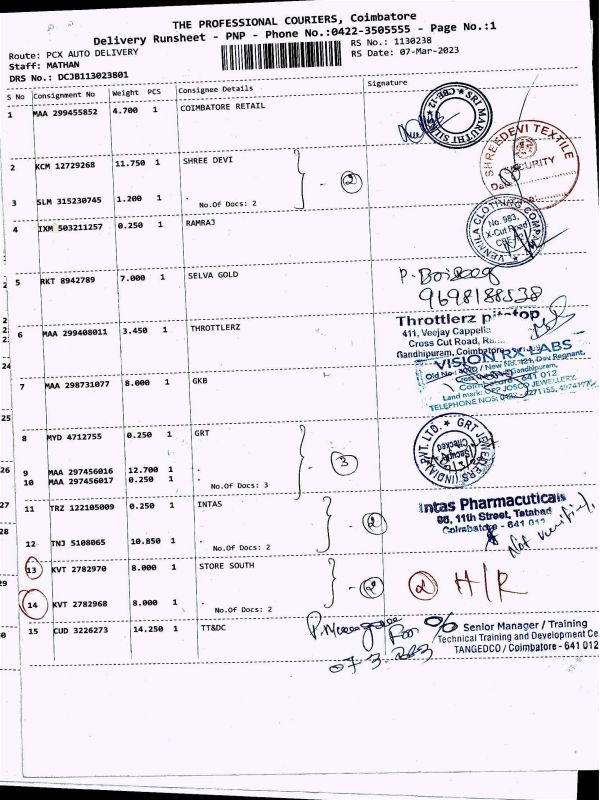 THE PROFESSIONAL COURIERS, Coimbatore
Delivery Runsheet - PNP - Phone No.:0422-3505555 - Page No.:1
Route: PCX AUTO DELIVERY
Staff: MATHAN
DRS No.: DCJB113023801
RS No.: 1130238
RS Date: 07-Mar-2023
S No Consignment No Weight PCS Consignee Details Signature
1 MAA 299455852 4.700 1 COIMBATORE RETAIL
SRI MARUTHI CBE-12
2 KCM 12729268 11.750 1 SHREE DEVI
- 2
SHREEDEVI TEXTILE
SECURITY
3 SLM 315230745 1.200 1 .
No.Of Docs: 2
4 IXM 503211257 0.250 1 RAMRAJ
VENNILA CLOTHING COMPANY
No. 983,
X-Cut Road
5 RKT 8942789 7.000 1 SELVA GOLD
9698188538
6 MAA 299408011 3.450 1 THROTTLERZ
Throttlerz pitstop
411, Veejay Cappella
Cross Cut Road,
Gandhipuram, Coimbatore
7 MAA 298731077 8.000 1 GKB
VISION RX LABS
Gandhipuram,
Coimbatore - 641 012
Land mark: OPP JOSCO JEWELLERY
TELEPHONE NOS:
8 MYD 4712755 0.250 1 GRT
GRT JEWELLERS (INDIA) PVT. LTD.
Security
Checked
9 MAA 297456016 12.700 1 .
10 MAA 297456017 0.250 1 .
No.Of Docs: 3
- 3
11 TRZ 122105009 0.250 1 INTAS
Intas Pharmacuticals
86, 11th Street, Tatabad
Coimbatore - 641 012
Not verified
12 TNJ 5108065 10.850 1 .
No.Of Docs: 2
- 2
13 KVT 2782970 8.000 1 STORE SOUTH
- 2
2 H/R
14 KVT 2782968 8.000 1 .
No.Of Docs: 2
15 CUD 3226273 14.250 1 TT&DC
For
Senior Manager / Training
Technical Training and Development Ce
TANGEDCO / Coimbatore - 641 012
25
26
27
28